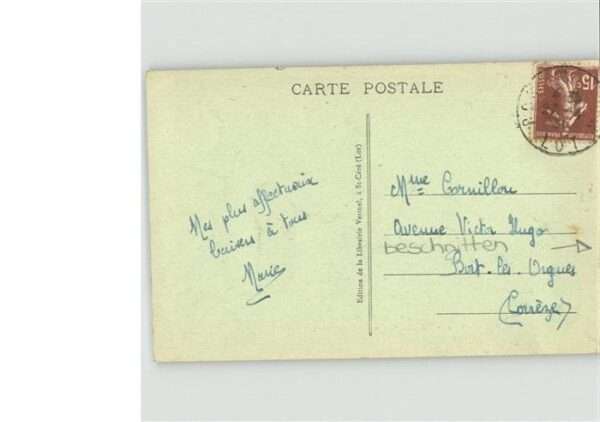 CARTE POSTALE
15c
LOT
Mes plus affectueux
baisers à tous
Marie
Edition de la Librairie Vertuel, à St-Céré (Lot)
Mme Cornillou
Avenue Victor Hugo
beschnitten
Bort-les-Orgues
(Corrèze)